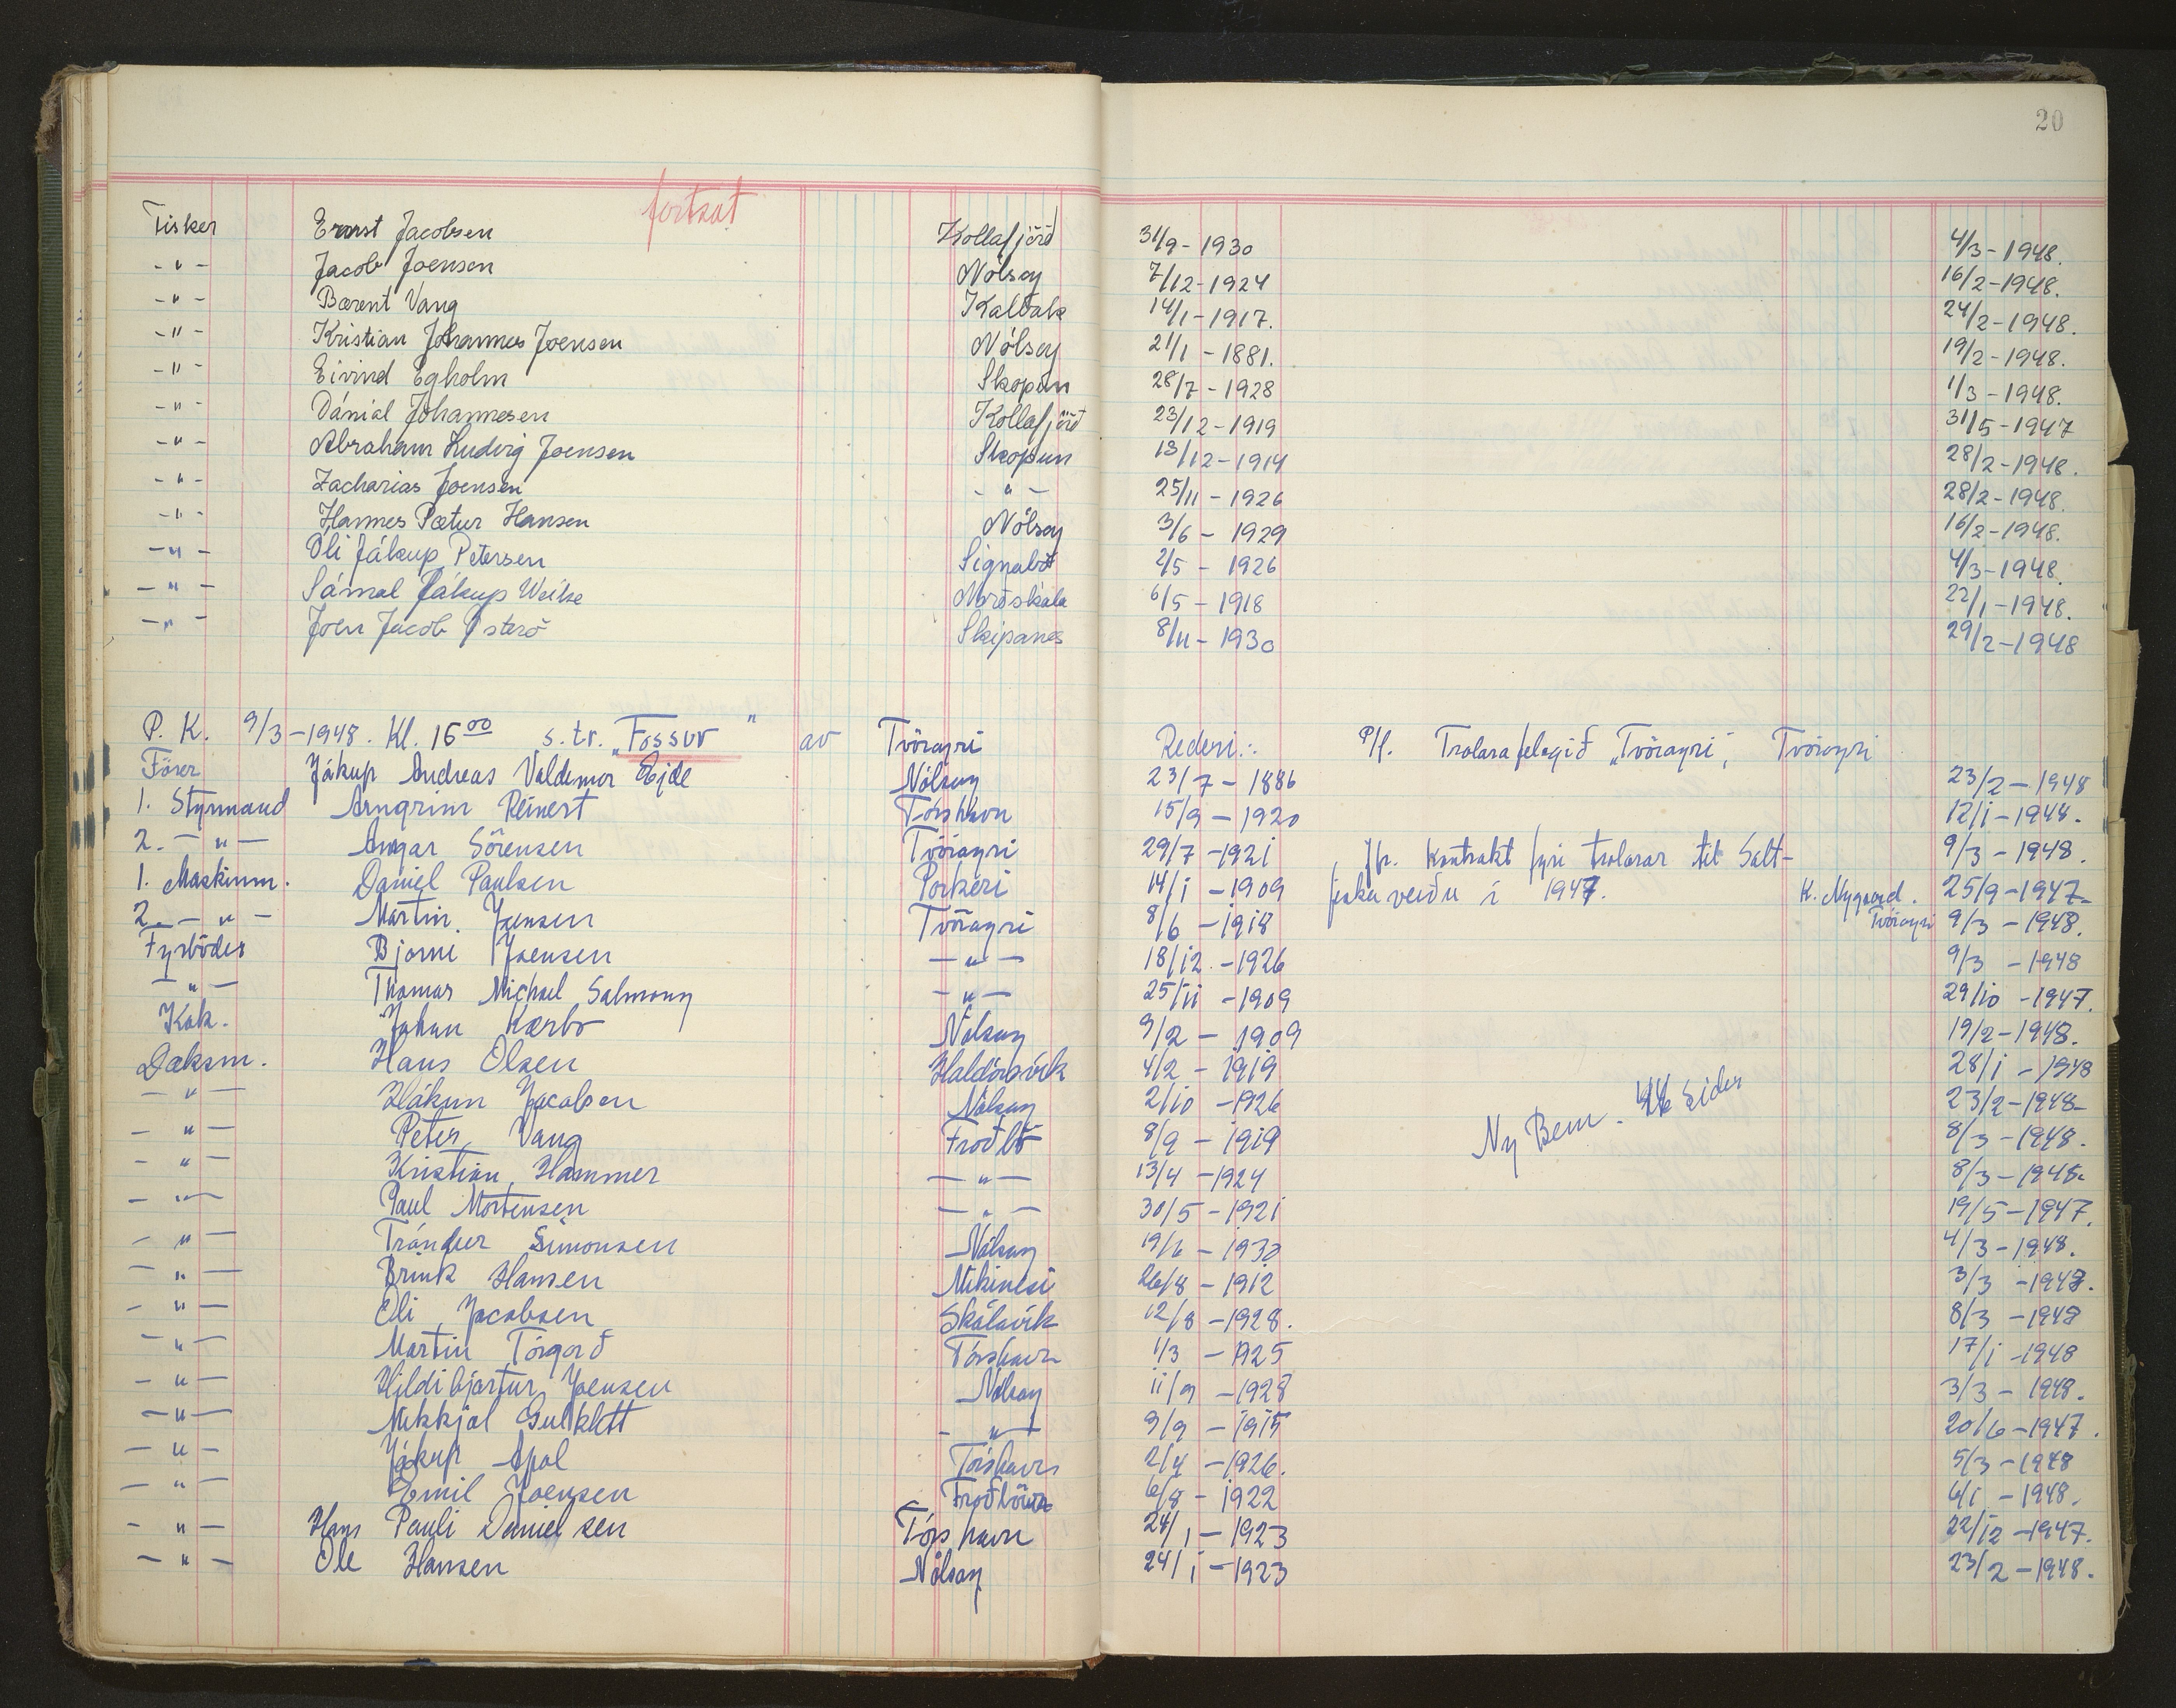 20
fortsat
Fisker Ernst Jacobsen Kollafjörð 31/9-1930 4/3-1948.
-"- Jacob Joensen Nólsoy 7/12-1924 16/2-1948.
-"- Bærent Vang Kaldbak 14/1-1917. 24/2-1948.
-"- Kristian Johannes Joensen Nólsoy 21/1-1881. 19/2-1948.
-"- Eivind Egholm Skopun 28/7-1928 1/3-1948.
-"- Dánial Johannesen Kollafjörð 23/12-1919 31/5-1947
-"- Abraham Ludvig Joensen Skopun 13/12-1914 28/2-1948.
-"- Zacharias Joensen -"- 25/11-1926 28/2-1948.
-"- Hannes Pætur Hansen Nólsoy 3/6-1929 16/2-1948.
-"- Oli Jákup Petersen Signabö 2/5-1926 4/3-1948.
-"- Sámal Jákup Weihe Norðskála 6/5-1918 22/1-1948.
-"- Joen Jacob Österö Skipanes 8/11-1930 29/2-1948
P. K. 9/3-1948. Kl. 16 00 s.tr. "Fossur" av Tvöroyri Rederi:. P/f. Trolarafelagið "Tvöroyri", Tvöroyri
Förer Jákup Andreas Valdemar Ejde Nólsoy 23/7-1886 23/2-1948
1. Styrmand Arngrim Reinert Tórshavn 15/9-1920 12/1-1948.
2. -"- Angar Sörensen Tvöroyri 29/7-1921 Jfr. Kontrakt fyri trolarar til Salt- 9/3-1948.
1. Maskinm. Daniel Paulsen Porkeri 14/1-1909 fiskaveiðu i 1947. K. Nygaard. 25/9-1947-
2. -"- Martin Joensen Tvöroyri 8/6-1918 Tvöroyri 9/3-1948.
Fyrböder Bjorni Joensen -"- 18/12-1926 9/3-1948
-"- Thomas Michael Salmony -"- 25/11-1909 29/10-1947.
Kok. Johan Kærbo Nólsoy 9/2-1909 19/2-1948.
Dæksm. Hans Olsen Haldórsvík 4/2-1919 28/1-1948
-"- Hákun Jacobsen Nólsoy 2/10-1926 23/2-1948-
-"- Peter Vang Froðbö 8/9-1919 Ny Bem. sider 8/3-1948.
-"- Kristian Hammer -"- 13/4-1924 8/3-1948.
-"- Paul Mortensen -"- 30/5-1921 19/5-1947.
-"- Tróndur Simonsen Nólsoy 19/6-1930 4/3-1948.
-"- Brink Hansen Mikinesi 26/8-1912 3/3-1948.
-"- Oli Jacobsen Skálavík 12/8-1928. 8/3-1948
-"- Martin Tórgorð Tórshavn 1/3-1925 17/1-1948
-"- Hildibjartur Joensen Nólsoy 11/9-1928 3/3-1948.
-"- Mikkjal Gulklett -"- 9/9-1915 20/6-1947.
-"- Jákup Apol Tórshavn 2/4-1926. 5/3-1948
-"- Emil Joensen Froðböur 6/8-1922 6/1-1948.
-"- Hans Pauli Danielsen Tórshavn 24/1-1923 22/12-1947.
-"- Ole Hansen Nólsoy 24/1-1923 23/2-1948.